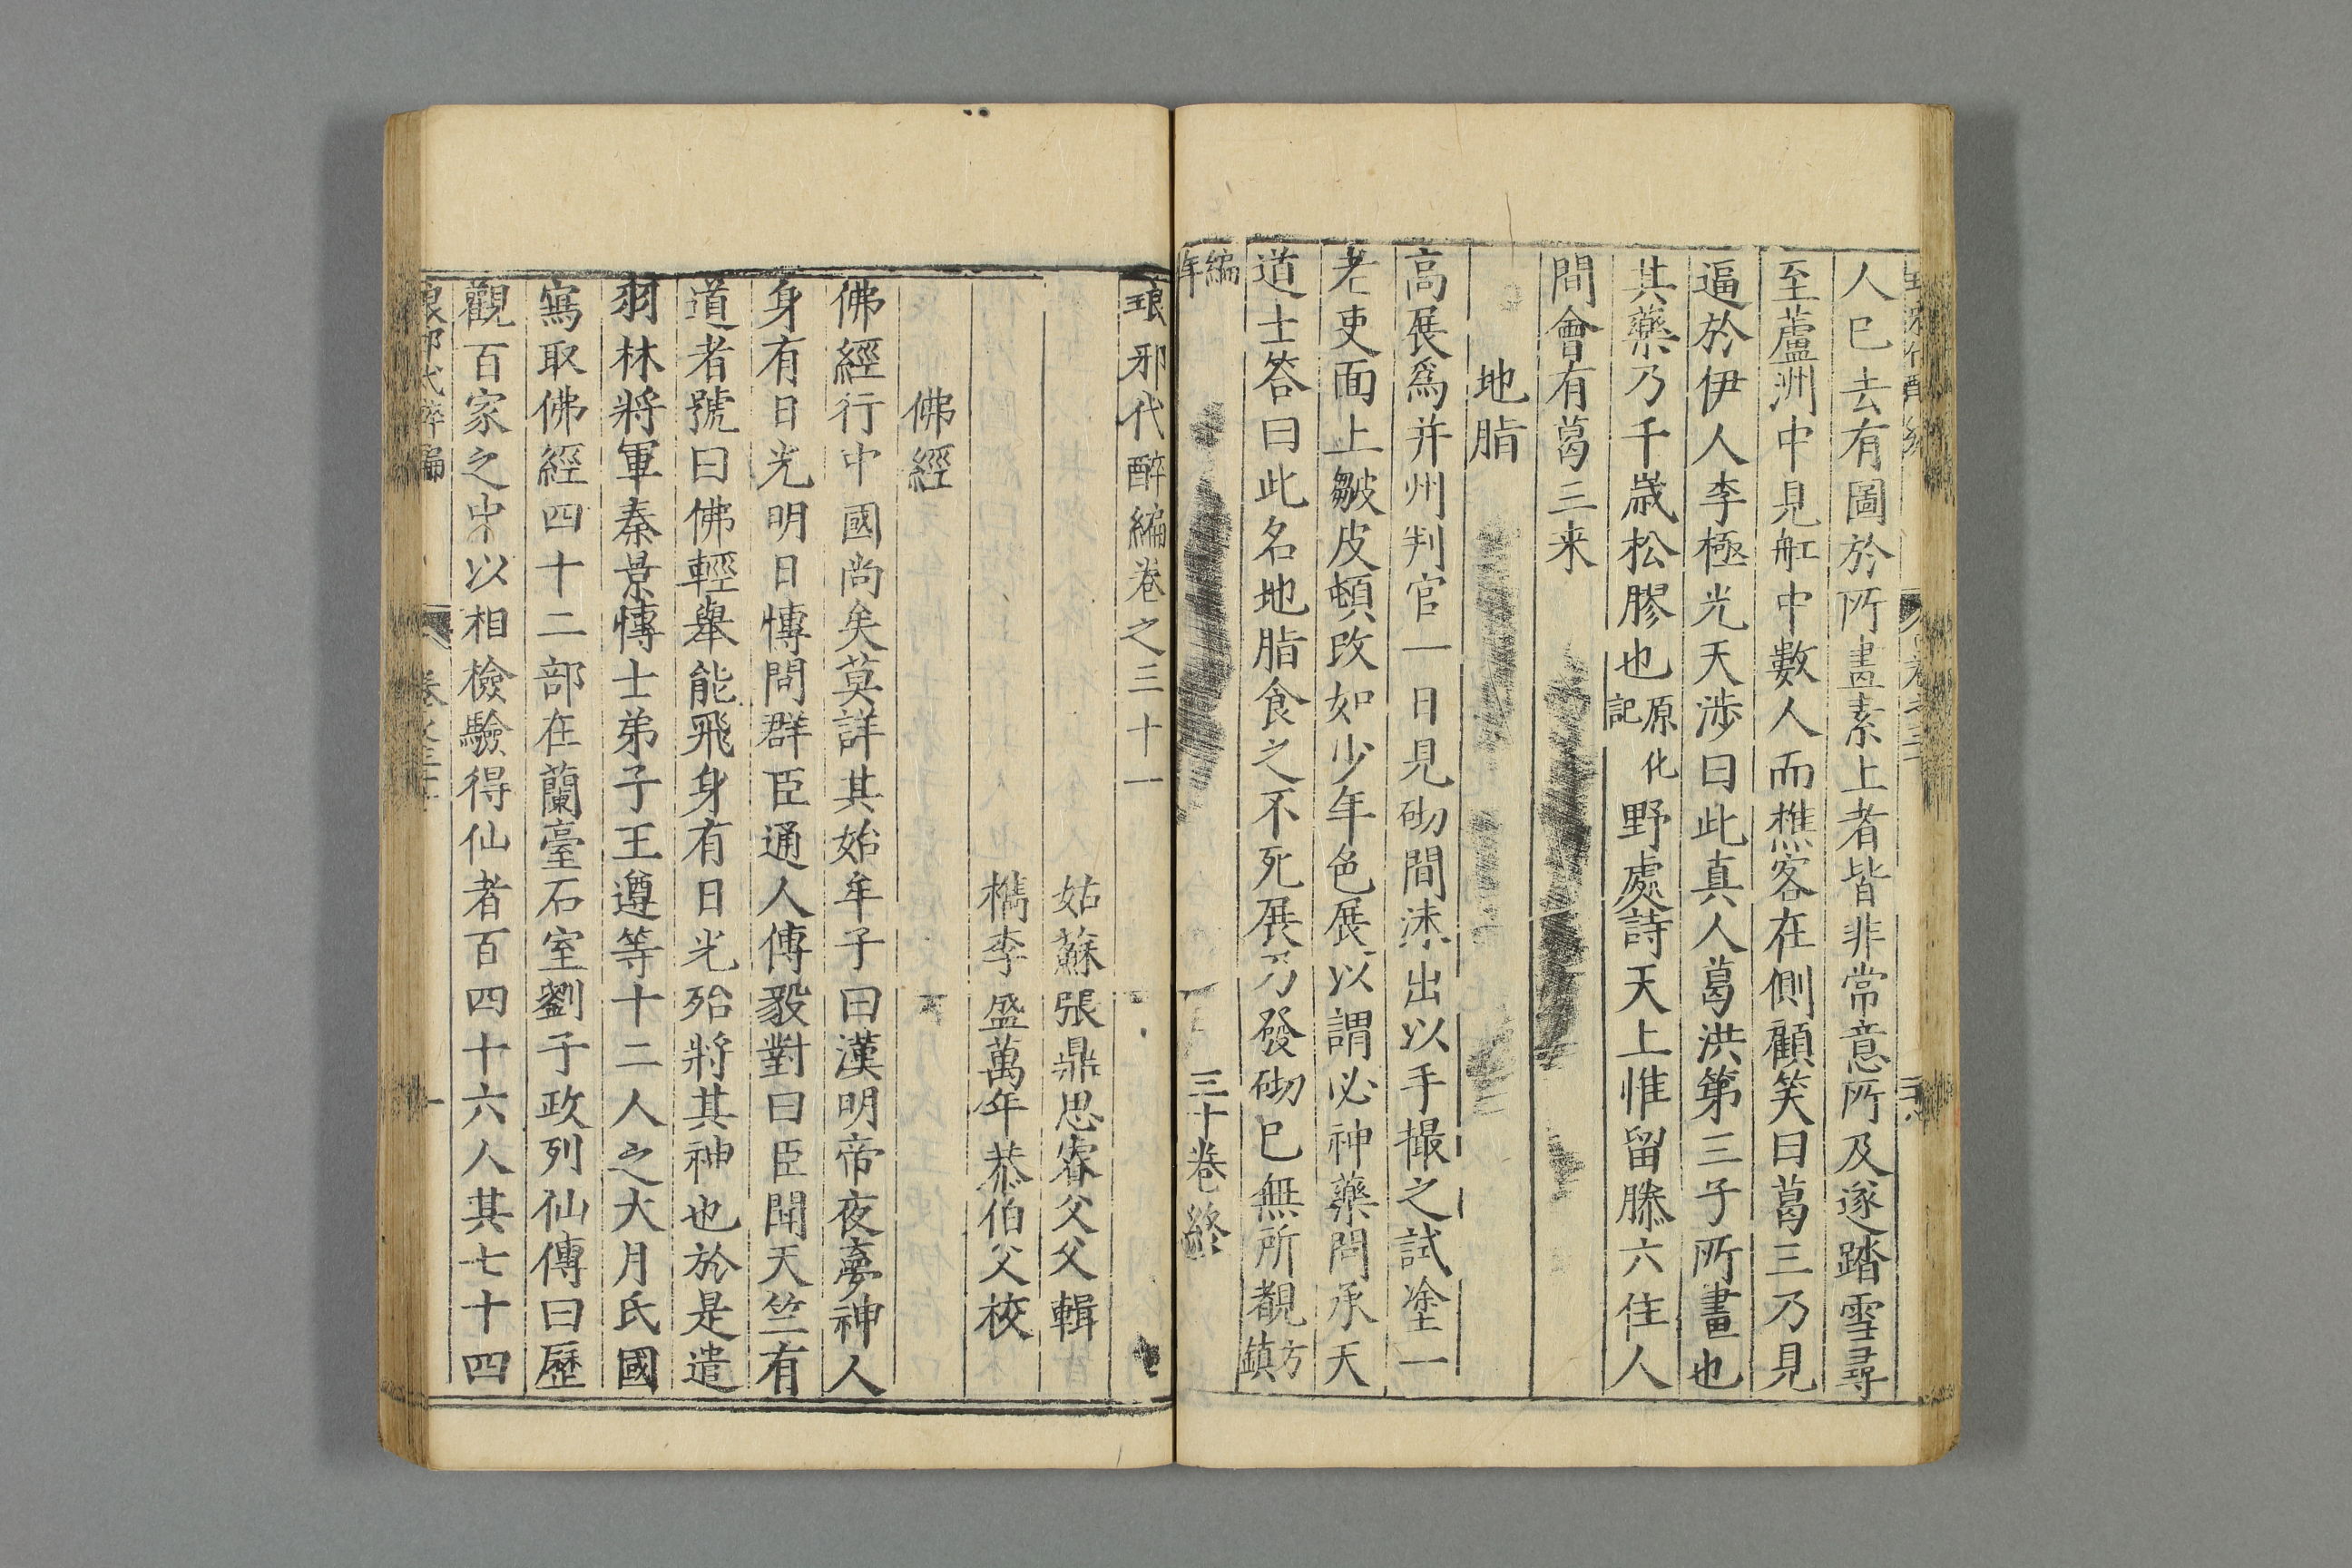 人已去有圖於所畫素上者皆非常意所及遂踏雪尋
至蘆洲中見舡中數人而樵客在側顧笑曰葛三乃見
逼於伊人李極光天涉曰此真人葛洪第三子所畫也
其藥乃千歲松膠也原化記野處詩天上惟留滕六住人
間會有葛三来
地脂
高展爲并州判官一日見砌間沫出以手撮之試塗一
老吏面上皺皮頓改如少年色展以謂必神藥問承天
道士答曰此名地脂食之不死展乃發砌已無所覩方鎮
編年
三十卷終
琅邪代醉編卷之三十一
姑蘇張鼎思睿父父輯
檇李盛萬年恭伯父校
佛經
佛經行中國尚矣莫詳其始牟子曰漢明帝夜夢神人
身有日光明日愽問群臣通人傅毅對曰臣聞天竺有
道者號曰佛輕舉能飛身有日光殆將其神也於是遣
羽林將軍秦景愽士弟子王遵等十二人之大月氏國
寫取佛經四十二部在蘭臺石室劉子政列仙傳曰歷
觀百家之中以相檢驗得仙者百四十六人其七十四